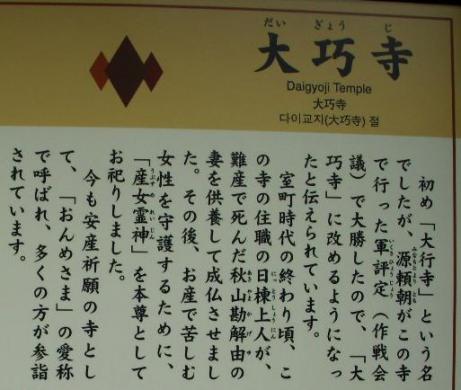 だい ぎょう じ
大巧寺
Daigyoji Temple
大巧寺
다이교지(大巧寺) 절
初め「大行寺」という名
でしたが、源頼朝がこの寺
で行った軍評定（作戦会
議）で大勝したので、「大
巧寺」に改めるようになっ
たと伝えられています。
室町時代の終わり頃、こ
の寺の住職の日棟上人が、
難産で死んだ秋山勘解由の
妻を供養して成仏させまし
た。その後、お産で苦しむ
女性を守護するために、
「産女霊神」を本尊として
お祀りしました。
今も安産祈願の寺とし
て、「おんめさま」の愛称
で呼ばれ、多くの方が参詣
されています。